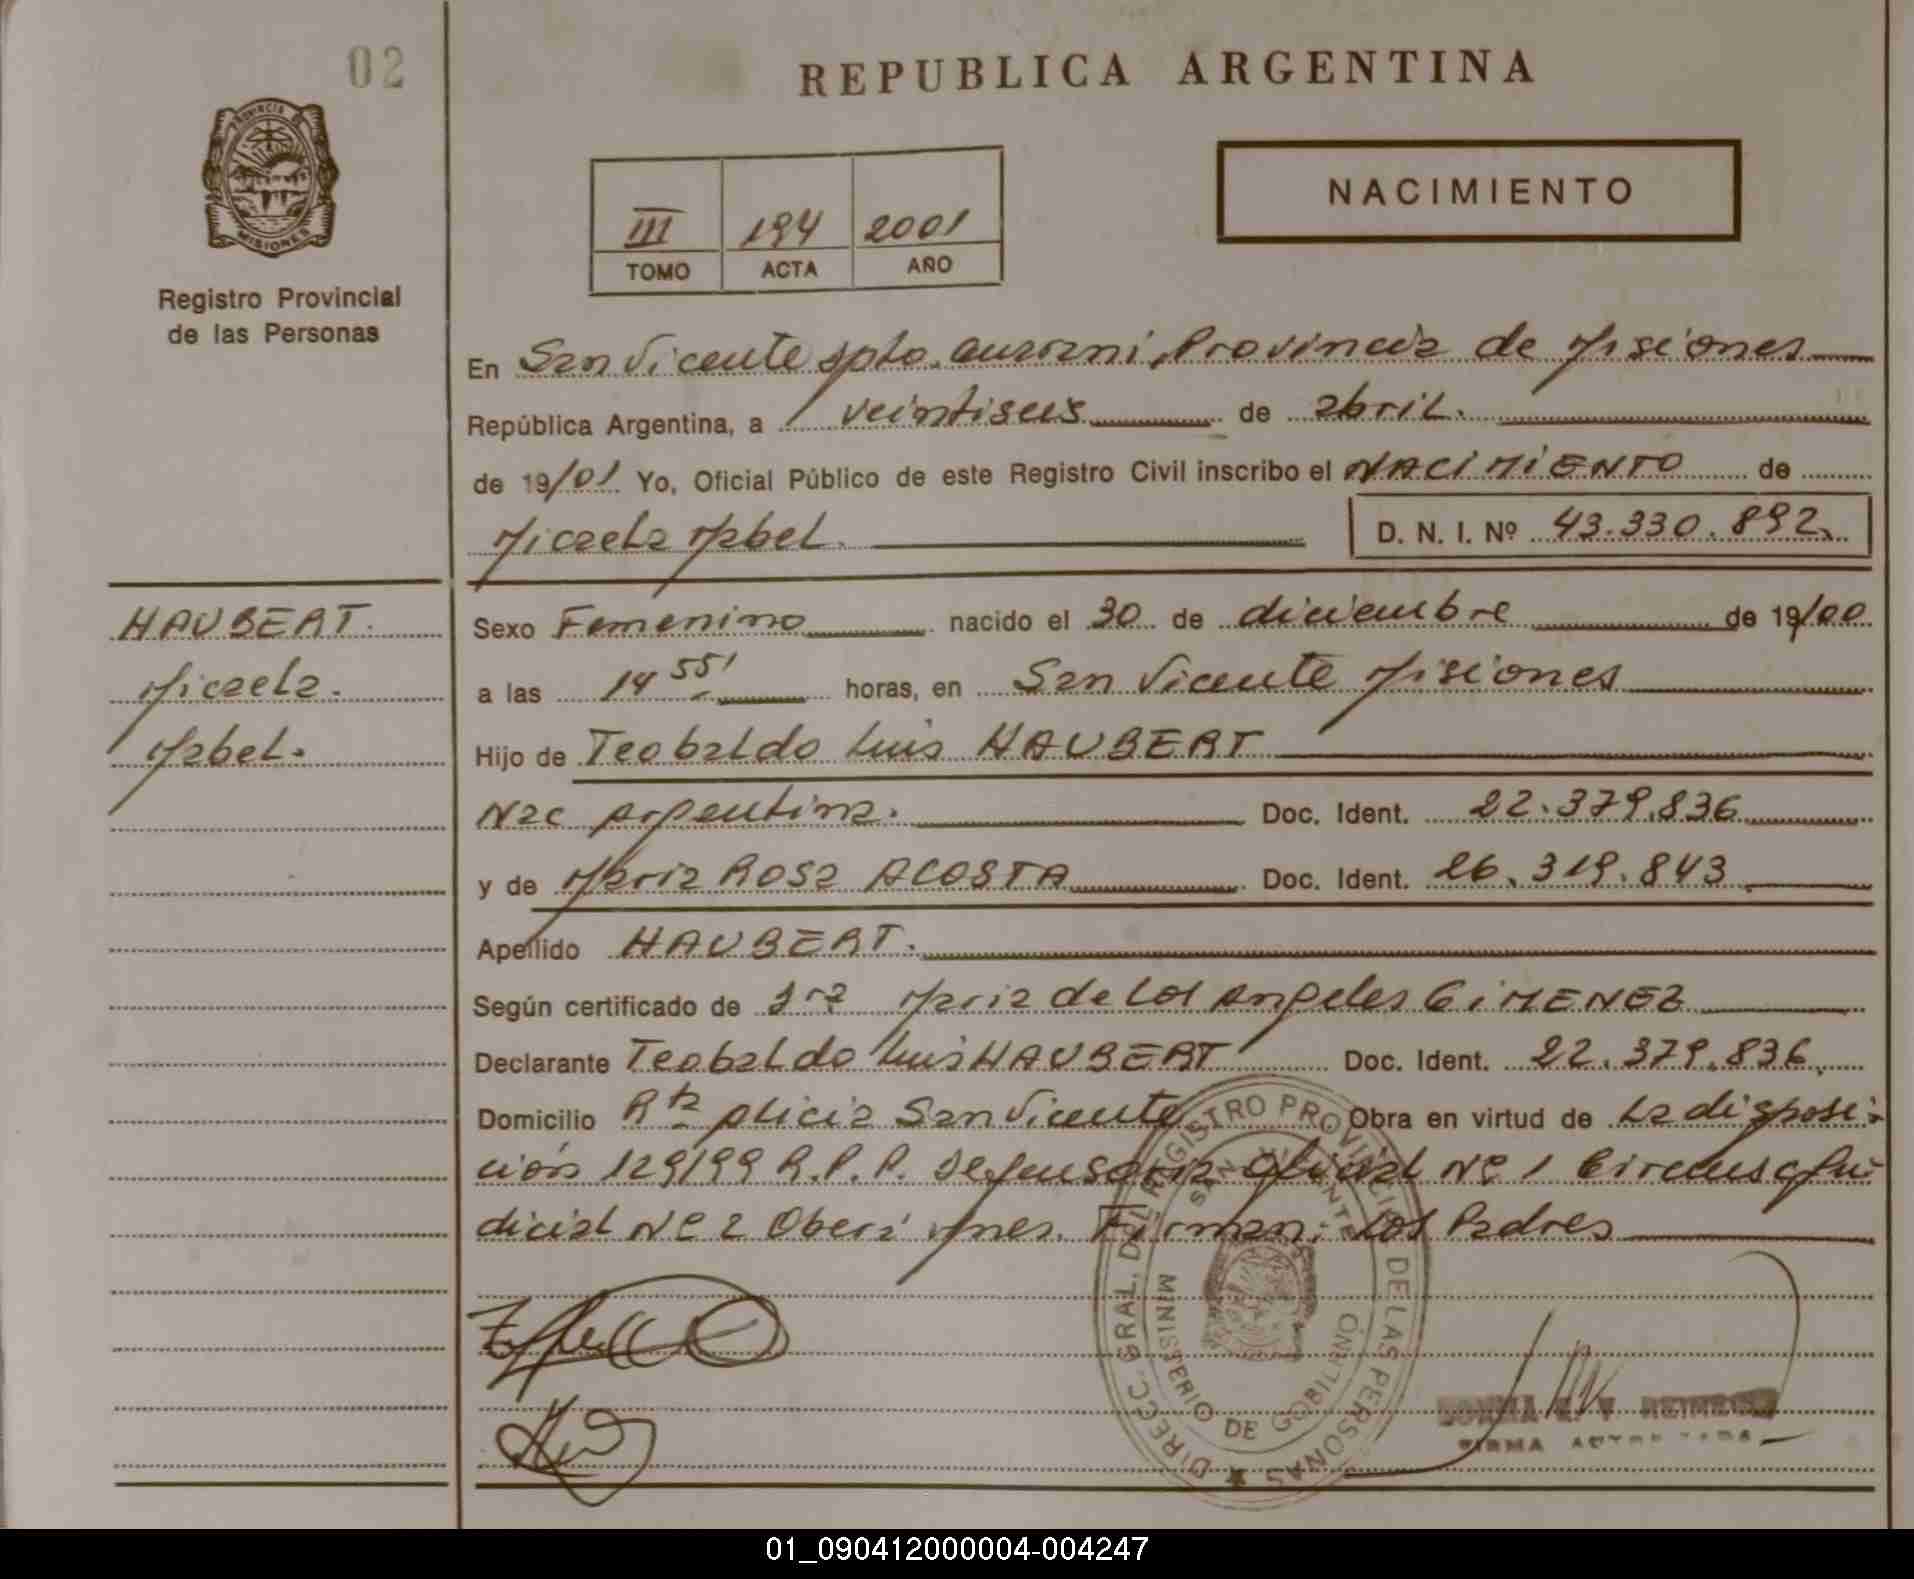 02
REPUBLICA ARGENTINA
PROVINCIA DE
MISIONES
Registro Provincial
de las Personas
III 194 2001
TOMO ACTA AÑO
NACIMIENTO
En San Vicente Dpto. Guarani, Provincia de Misiones
República Argentina, a veintiseis de abril.
de 19/01 Yo, Oficial Público de este Registro Civil inscribo el NACIMIENTO de
Micaela Mabel. D. N. I. Nº 43.330.892
HAUBERT.
Micaela.
Mabel.
Sexo Femenino nacido el 30 de diciembre de 19/00
a las 14 55' horas, en San Vicente Misiones
Hijo de Teobaldo Luis HAUBERT
Nac Argentina. Doc. Ident. 22.379.836
y de Maria Rosa ACOSTA Doc. Ident. 26.319.843
Apellido HAUBERT.
Según certificado de Maria de Los Angeles GIMENEZ
Declarante Teobaldo Luis HAUBERT Doc. Ident. 22.379.836
Domicilio San Vicente Obra en virtud de La disposi-
ción 129/99 R.P.P. Defensoria Oficial Nº 1 Ju-
dicial Nº 2 Oberá Mnes. Firman: Los Padres
DIRECC. GRAL. DEL REGISTRO PROVINCIAL DE LAS PERSONAS
SAN VICENTE
MINISTERIO DE GOBIERNO
FIRMA
01_090412000004-004247